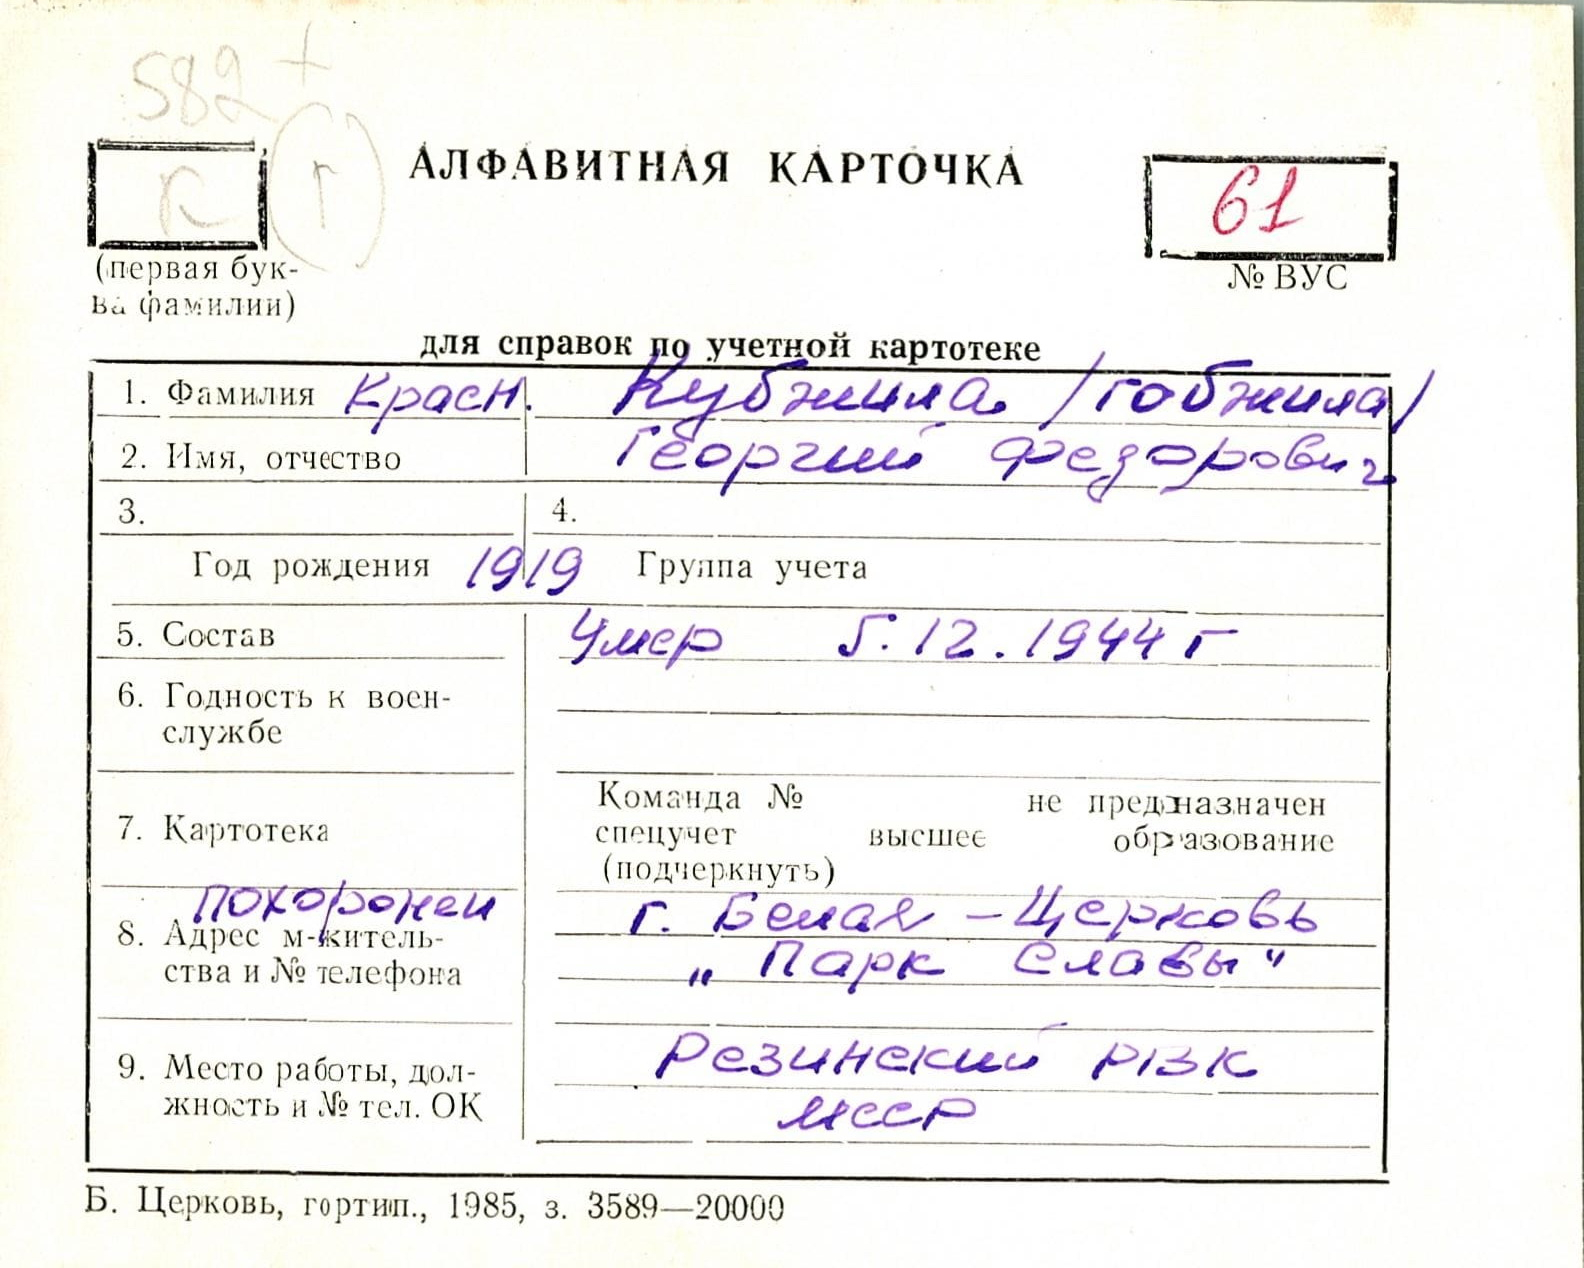 582 +
К Г
АЛФАВИТНАЯ КАРТОЧКА
61
(первая бук-
ва фамилии)
№ ВУС
для справок по учетной картотеке
1. Фамилия Красн. Кубжила /Гобжила/
2. Имя, отчество Георгий Федорович
3. 4.
Год рождения 1919 Группа учета
5. Состав Умер 5.12.1944 г
6. Годность к воен-
службе
7. Картотека
Команда № не предназначен
спецучет высшее образование
(подчеркнуть)
похоронен г. Белая-Церковь
8. Адрес м-жительства и № телефона
„Парк Славы"
9. Место работы, дол-
жность и № тел. ОК
Резинский РВК
МССР
Б. Церковь, гортип., 1985, з. 3589—20000